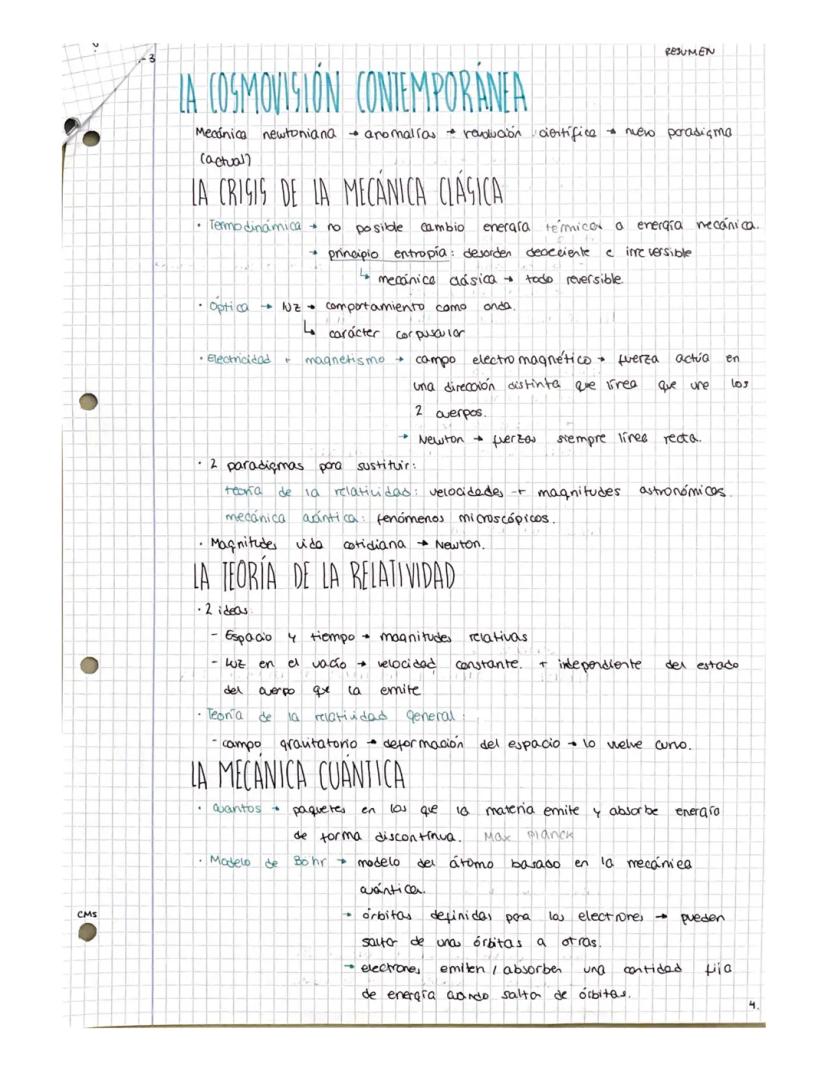 RESUMEN
-3
LA COSMOVISIÓN CONTEMPORÁNEA
Mecánica newtoniana → anomalías → revolución científica → nuevo paradigma
(actual)
LA CRISIS DE LA MECÁNICA CLÁSICA
· Termodinámica → no posible cambio energía térmica a energía mecánica.
→ principio entropía: desorden
e irreversible
↳ mecánica clásica → todo reversible.
· Óptica → luz → comportamiento como onda.
↳ carácter corpuscular
· Electricidad + magnetismo → campo electromagnético → fuerza actúa en
una dirección distinta que línea que une los
2 cuerpos.
→ Newton → fuerzas siempre línea recta.
· 2 paradigmas para sustituir:
teoría de la relatividad: velocidades + magnitudes astronómicas.
mecánica cuántica: fenómenos microscópicos.
· Magnitudes vida cotidiana → Newton.
LA TEORÍA DE LA RELATIVIDAD
· 2 ideas
- Espacio y tiempo → magnitudes relativas
- Luz en el vacío → velocidad constante. + independiente del estado
del cuerpo que la emite
· Teoría de la relatividad general:
- campo gravitatorio → deformación del espacio → lo vuelve curvo.
LA MECÁNICA CUÁNTICA
· Cuantos → paquetes en los que la materia emite y absorbe energía
de forma discontínua. Max Planck
· Modelo de Bohr → modelo del átomo basado en la mecánica
cuántica.
→ órbitas definidas para los electrones → pueden
saltar de unas órbitas a otras.
CMS
→ electrones emiten / absorben una cantidad fija
de energía cuando saltan de órbitas.
4.